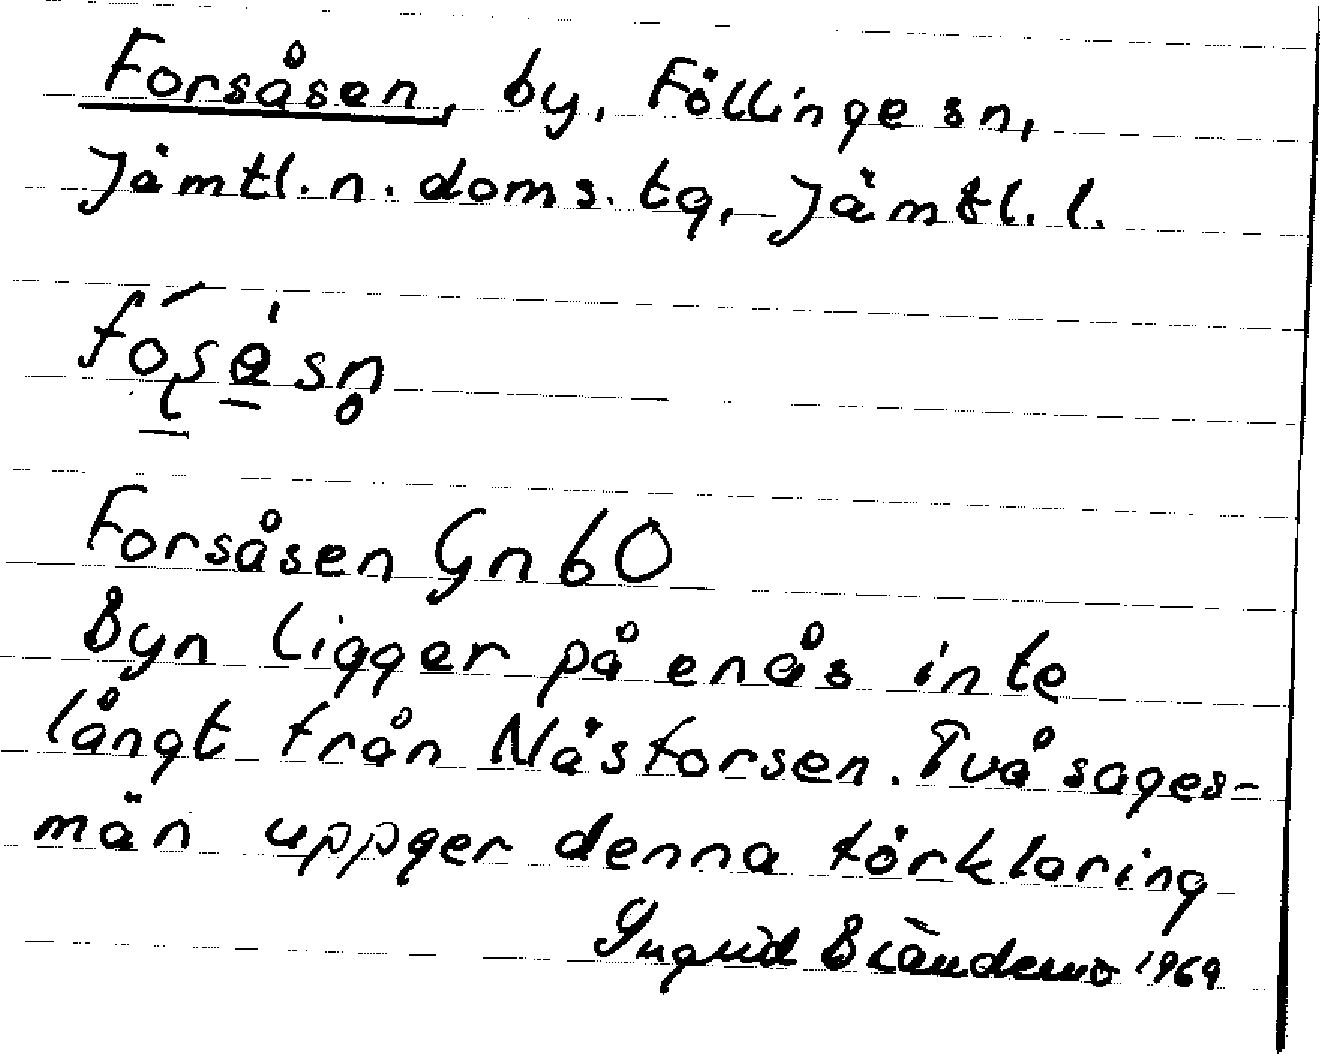 Forsåsen, by, Föllinge sn,
Jämtl. n. doms. tg, Jämtl. l.
Forsåsen GnbO
Byn ligger på en ås inte
långt från Näsforsen. Två sages-
män uppger denna förklaring
Ingrid Brändemo 1969